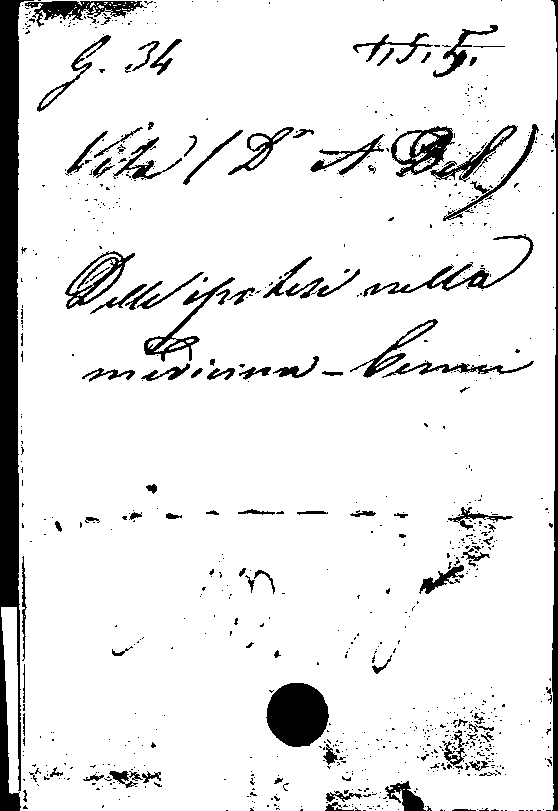 G. 34
1.5.5.
Vita (Dr A. Del)
Delle ipotesi nella
medicina - Cenni